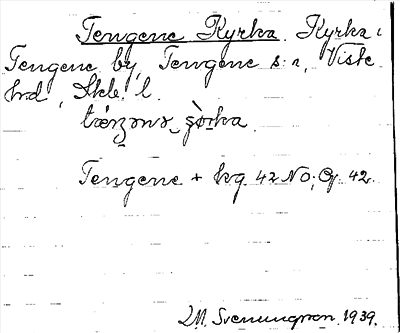 Tengene Kyrka. Kyrka i
Tengene by, Tengene s:n, Viste
hd, Skb. l.
Tengene + kg 42 NO; Gg. 42.
M. Svenungsson 1939.